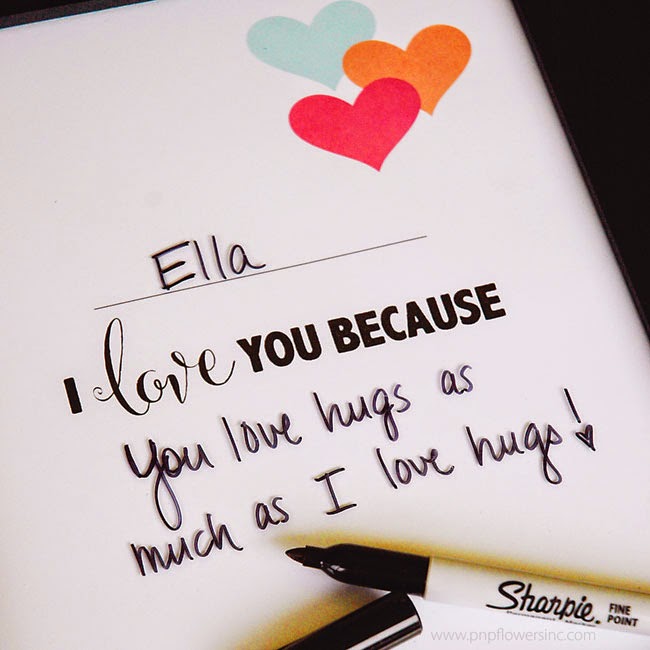 Ella
I love YOU BECAUSE
You love hugs as
much as I love hugs!
Sharpie. FINE
POINT
www.pnpflowersinc.com